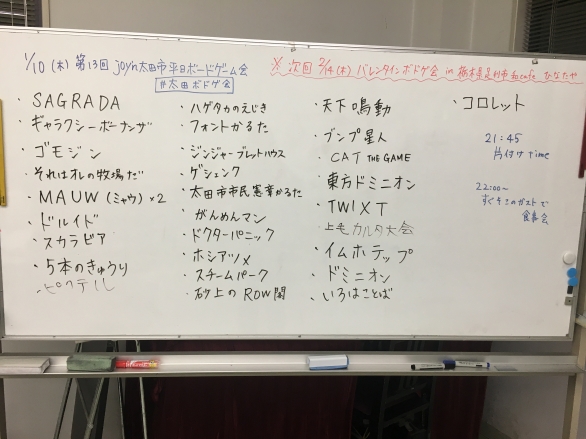 1/10 (木) 第13回 joyn太田市 平日ボードゲーム会
#太田ボドゲ会
※ 次回 2/14(木) バレンタインボドゲ会 in 栃木県足利市 cafe ひなたや
・SAGRADA
・ギャラクシーボーナンザ
・ゴモジン
・それはオレの牧場だ
・MAUW (ミャウ) ×2
・ドルイド
・スカラビア
・5本のきゅうり
・ハゲタカのえじき
・フォントかるた
・ジンジャーブレットハウス
・ゲシェンク
・太田市市民憲章かるた
・がんめんマン
・ドクターパニック
・ホシアツメ
・スチームパーク
・砂上のROW閣
・天下鳴動
・ブンプ星人
・CAT THE GAME
・東方ドミニオン
・TWIXT
・上毛カルタ大会
・イムホテップ
・ドミニオン
・いろはことば
・コロレット
21:45
片付け time
22:00~
すぐそこのガストで
食事会